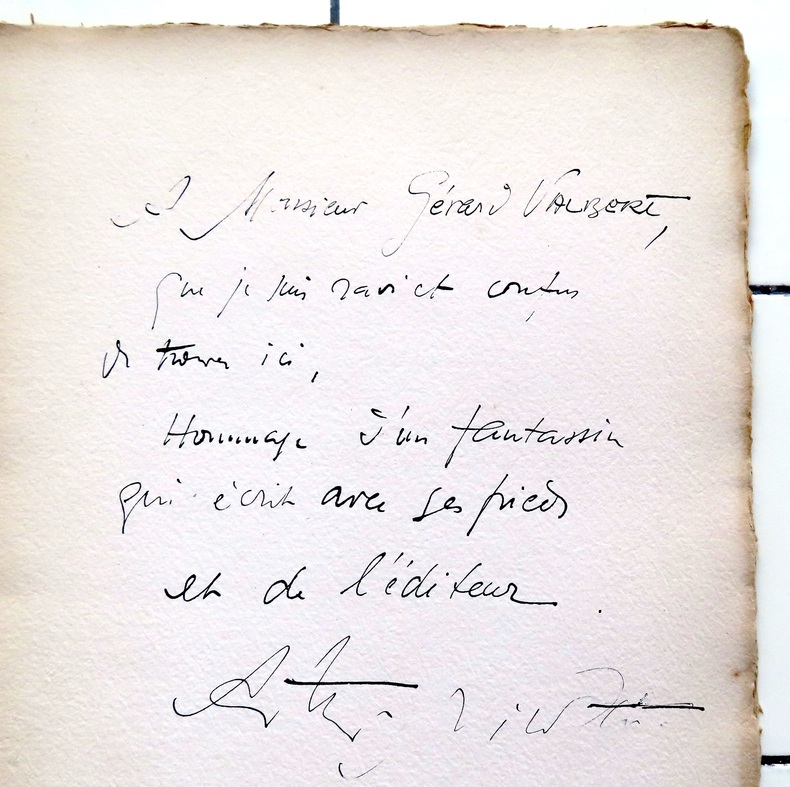 A Monsieur Gérard VALBERT,
que je suis ravi et confus
de trouver ici,
Hommage d'un fantassin
qui écrit avec ses pieds
et de l'éditeur.